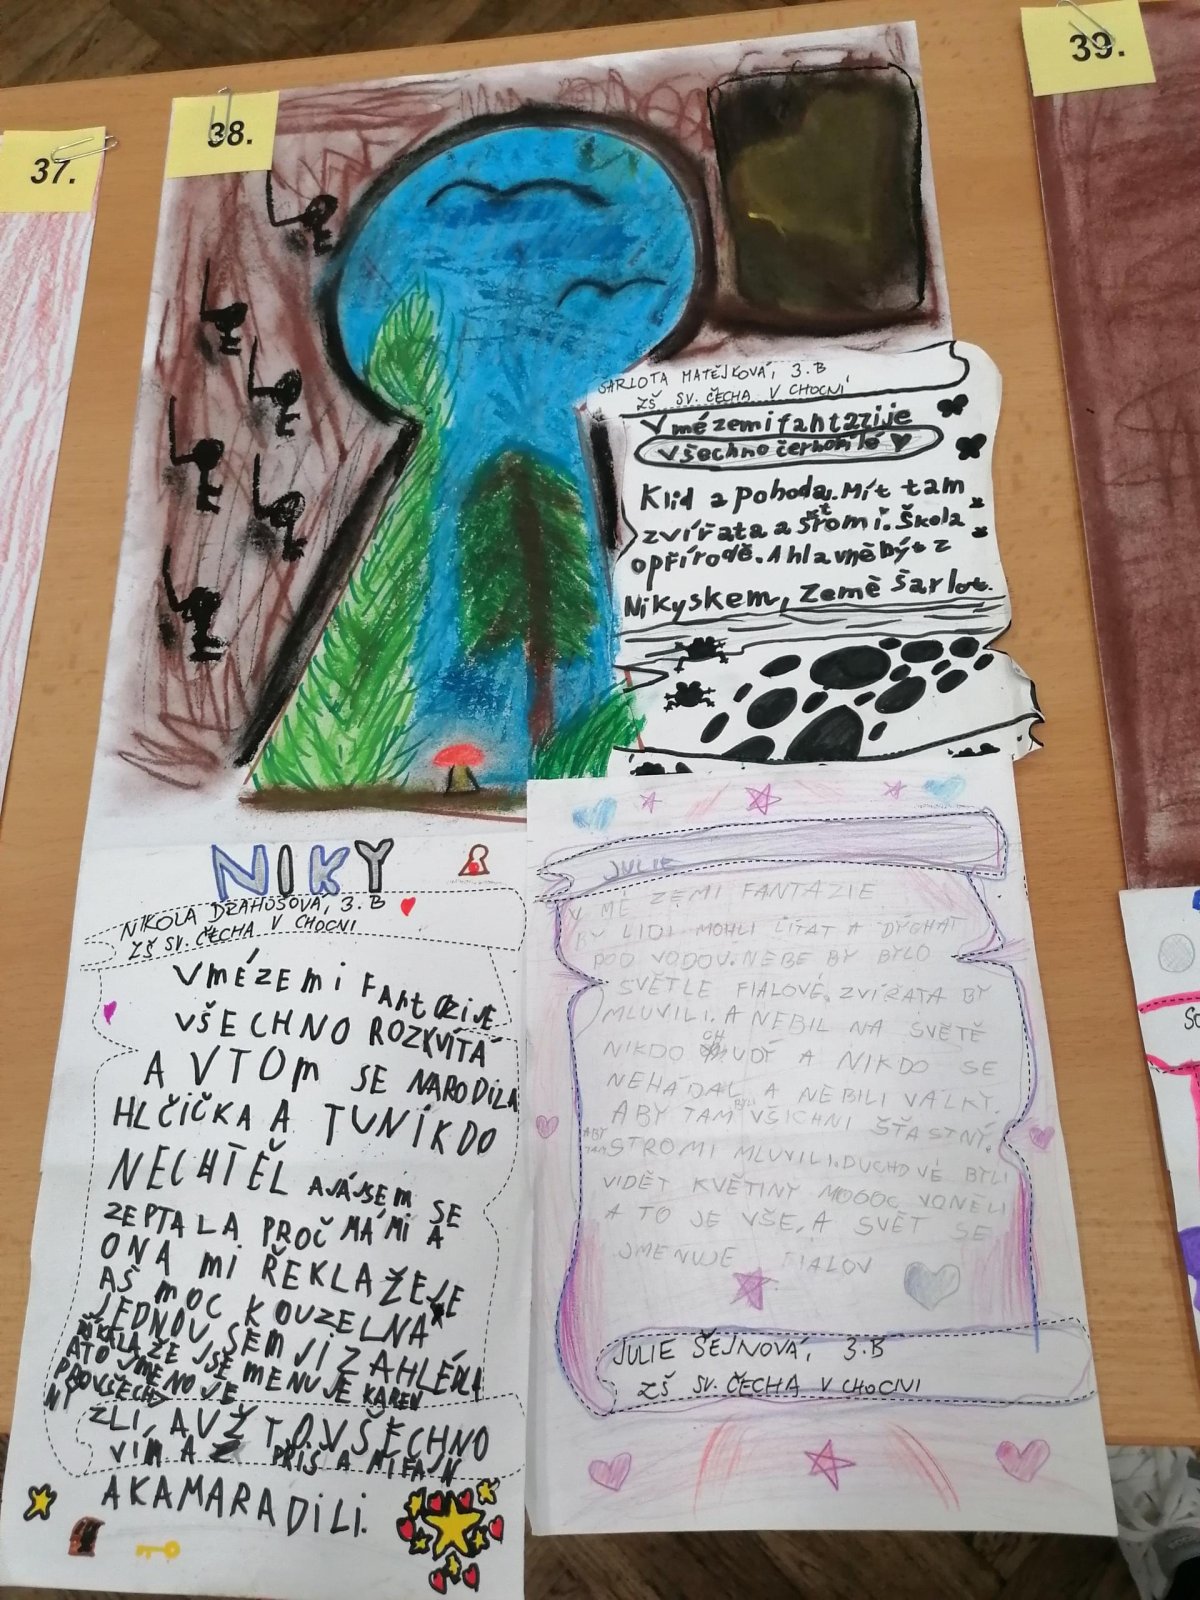 37.
38.
39.
ŠARLOTA MATĚJKOVÁ, 3.B
ZŠ SV. ČECHA V CHOCNI
V mé zemi fantazije
všechno černobílé
Klid a pohoda. Mít tam
zvířata a stromi. Škola
o přírodě. A hlavně být z
Nikyskem, Země Šarlot.
NIKY
NIKOLA DRAHOŠOVÁ, 3.B
ZŠ SV. ČECHA V CHOCNI
V mé zemi FANtazije
VŠECHNO ROZKVÍTÁ
A VTOM SE NARODILA
HLČIČKA A TUNIKDO
NECHTĚL AJÁJSEM SE
ZEPTALA PROČ MÁMI A
ONA mi ŘEKLAŽEJE
AŠ MOC KOUZELNÁ
JEDNOU SEM JI ZAHLÉDLA
ŘÍKALA ŽE JSE MENUJE KAREN
ATO JMENO JE
PROVŠECHNY
ZLÍ, AVŽ TO VŠECHNO
VÍM A PŘIŠ A
AKAMARADILI.
JULIE
V MÉ ZEMI FANTAZIE
BY LIDI MOHLI LÍTAT A DÝCHAT
POD VODOU. NEBE BY BYLO
SVĚTLE FIALOVÉ, ZVÍŘATA BY
MLUVILI. A NEBIL NA SVĚTĚ
NIKDO CHUDÝ A NIKDO SE
NEHÁDAL A NEBILI VÁLKY.
ABY TAM BYLI VŠICHNI ŠŤASTNÝ,
ABY TAM STROMI MLUVILI. DUCHOVÉ BYLI
VIDĚT KVĚTINY MOOOC VONĚLI
A TO JE VŠE, A SVĚT SE
JMENUJE FIALOV
JULIE ŠEJNOVÁ, 3.B
ZŠ SV. ČECHA V CHOCNI